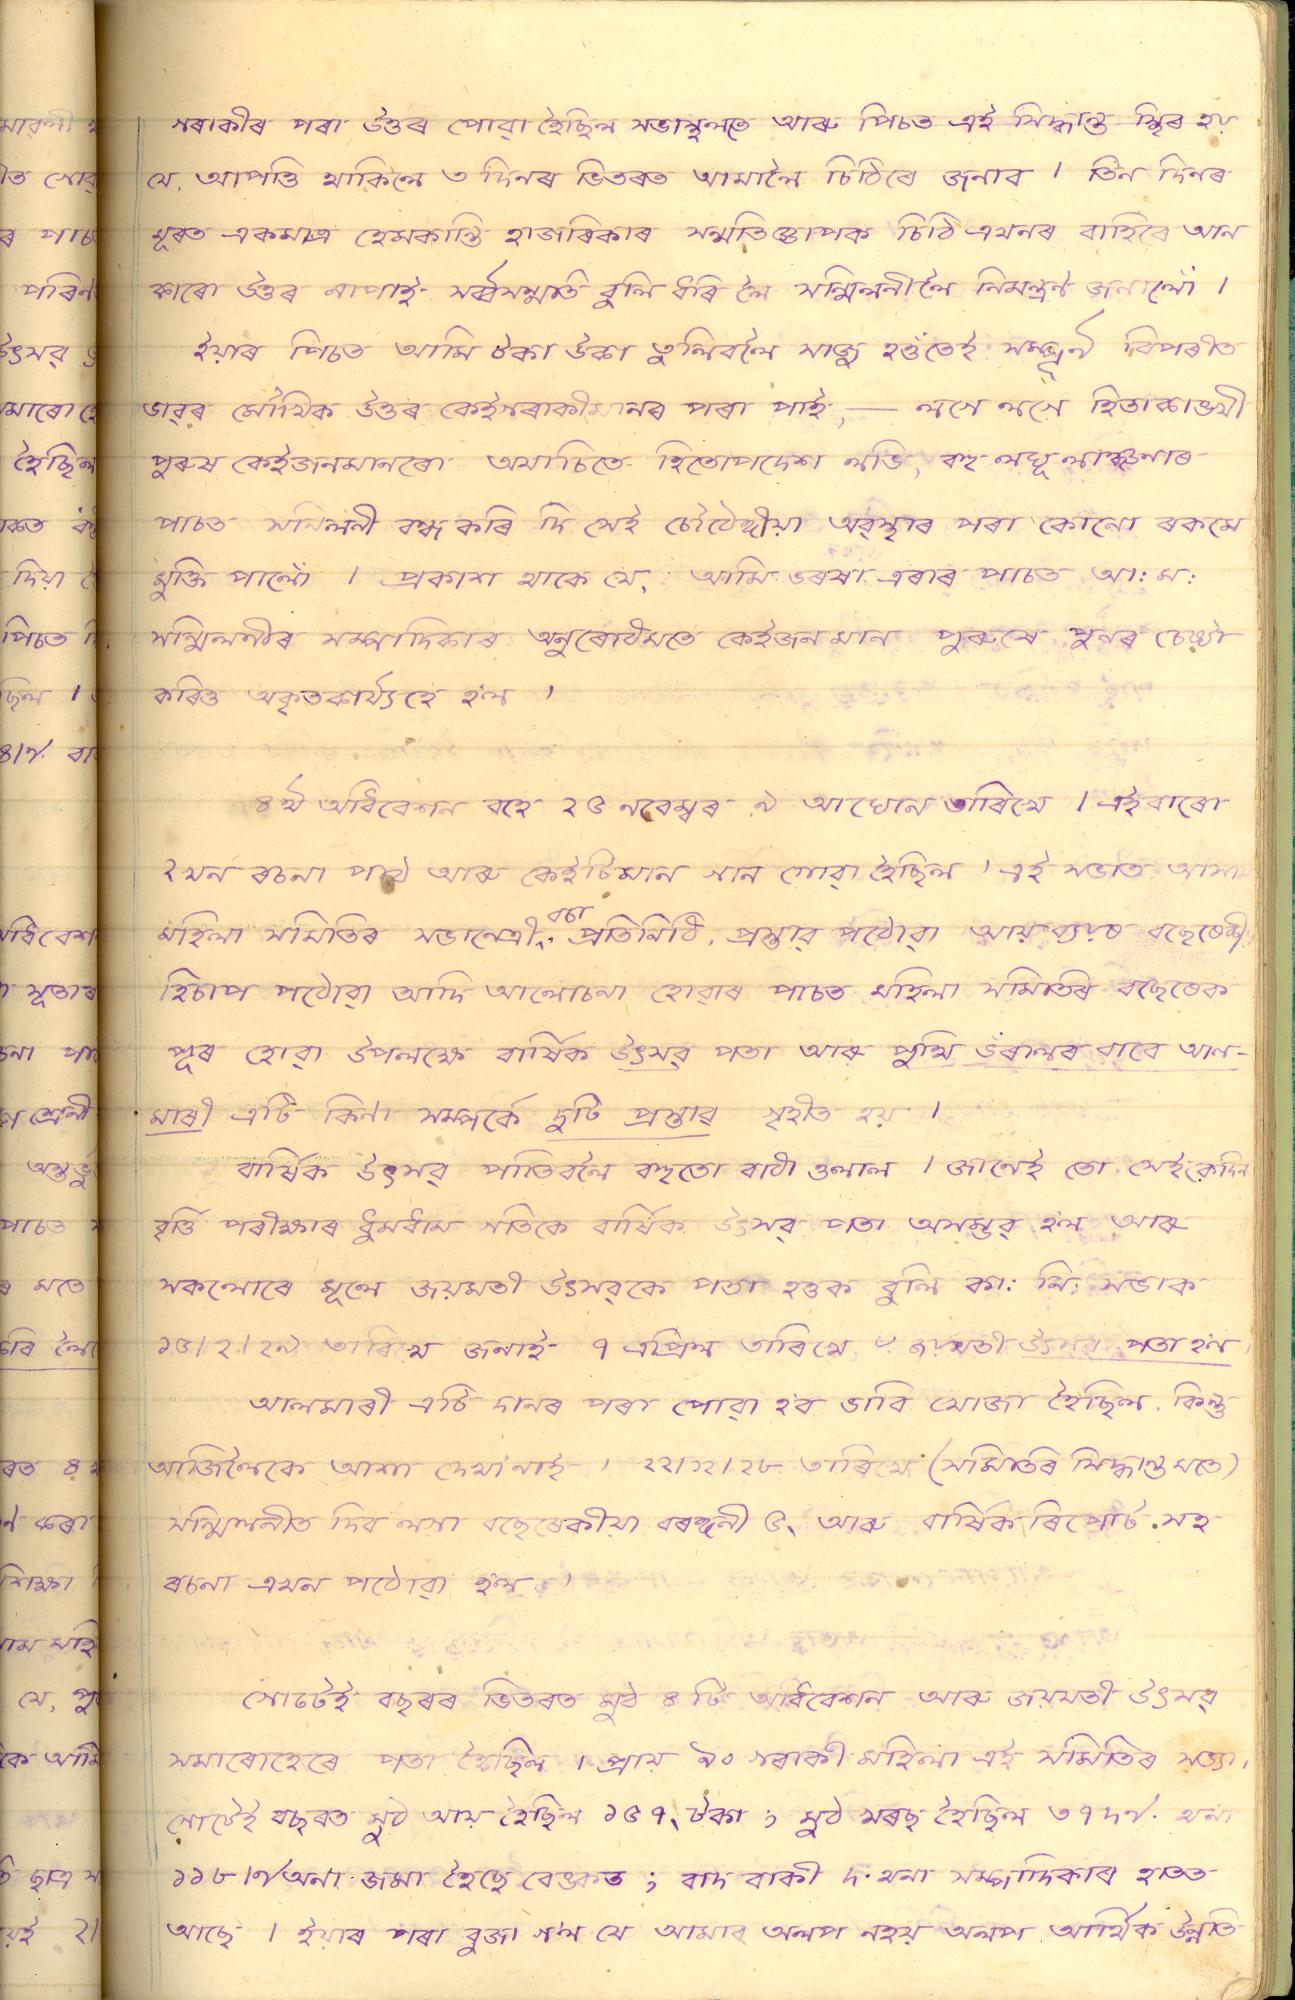 গৰাকীৰ পৰা উত্তৰ পোৱা হৈছিল সভাস্থলতে আৰু পিচত এই সিদ্ধান্ত স্থিৰ হয়
যে, আপত্তি থাকিলে ৩ দিনৰ ভিতৰত আমালৈ চিঠিৰে জনাব । তিন দিনৰ
মূৰত একমাত্ৰ হেমকান্তি হাজৰিকাৰ সন্মতিজ্ঞাপক চিঠি এখনৰ বাহিৰে আন
কাৰো উত্তৰ নাপাই সৰ্ব্বসন্মতি বুলি ধৰি লৈ সন্মিলনীলৈ নিমন্ত্ৰণ জনালোঁ ।
ইয়াৰ পিচত আমি টকা উকা তুলিবলৈ সাজু হওঁতেই সম্পূৰ্ণ বিপৰীত
ভাৱৰ মৌখিক উত্তৰ কেইগৰাকীমানৰ পৰা পাই, — লগে লগে হিতাকাঙ্খী
পুৰুষ কেইজনমানৰো অযাচিতে হিতোপদেশ লভি, বহু লঘূ লাঞ্ছনাৰ
পাচত সন্মিলনী বন্ধ কৰি দি সেই চৌঠেঙ্গীয়া অৱস্থাৰ পৰা কোনো ৰকমে
মুক্তি পালোঁ । প্ৰকাশ থাকে যে, আমি ভৰষা এৰাৰ পাচত আ: ম:
সন্মিলনীৰ সম্পাদিকাৰ অনুৰোধমতে কেইজনমান পুৰুষে পুনৰ চেষ্টা
কৰিও অকৃতকাৰ্য্য হে হ'ল ।
৪ৰ্থ অধিবেশন বহে ২৫ নবেম্বৰ ৯ আঘোন তাৰিখে । এইবাৰো
২খন ৰচনা পাঠ আৰু কেইটিমান গান গোৱা হৈছিল । এই সভাত
মহিলা সমিতিৰ সভানেত্ৰী, বচা প্ৰতিনিধি, প্ৰস্তাৱ পঠোৱা আয় ব্যয়ৰ বছেৰেকী
হিচাপ পঠোৱা আদি আলোচনা হোৱাৰ পাচত মহিলা সমিতিৰ বছেৰেক
পূৰ হোৱা উপলক্ষে বাৰ্ষিক উৎসৱ পতা আৰু পুথি ভঁৰালৰ বাবে আল-
মাৰী এটি কিনা সম্পৰ্কে দুটি প্ৰস্তাৱ গৃহীত হয় ।
বাৰ্ষিক উৎসৱ পাতিবলৈ বহুতো বাধা ওলাল । জানেই তো সেইকেদিন
বৃৰ্ত্তি পৰীক্ষাৰ ধুমধাম গতিকে বাৰ্ষিক উৎসৱ পতা অসম্ভৱ হ'ল আৰু
সকলোৰে মূলে জয়মতী উৎসৱকে পতা হওক বুলি কা: নি: সভাক
১৫/২/২৯ তাৰিখে জনাই ৭ এপ্ৰিল তাৰিখে ৺ জয়মতী উৎসৱ পতা হ'ল
আলমাৰী এটি দানৰ পৰা পোৱা হ'ব ভাবি থোজা হৈছিল. কিন্তু
আজিলৈকে আশা দেখা নাই । ২২/১২/২৮ তাৰিখে (সমিতিৰ সিদ্ধান্ত মতে)
সন্মিলনীত দিব লগা বছেৰেকীয়া বৰঙ্গনী ৫৲ আৰু বাৰ্ষিক ৰিপোৰ্ট সহ
ৰচনা এখন পঠোৱা হ'ল ।
গোটেই বছৰৰ ভিতৰত মুঠ ৪ টি অধিবেশন আৰু জয়মতী উৎসৱ
সমাৰোহেৰে পতা হৈছিল । প্ৰায় ৯০ গৰাকী মহিলা এই সমিতিৰ সভ্যা ।
গোটেই বছৰত মুঠ আয় হৈছিল ১৫৭৲ টকা ; মুঠ খৰছ হৈছিল
অনা জমা হৈছে বেঙ্কত ; বাদ বাকী সম্পাদিকাৰ হাতত
আছে । ইয়াৰ পৰা বুজা গ'ল যে আমাৰ অলপ নহয় অলপ আৰ্থিক উন্নতি